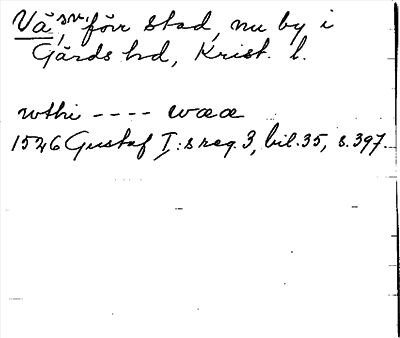 Vä, sn. förr stad, nu by i
Gärds hd, Krist. l.
wthi ---- wææ
1526 Gustaf I:s reg. 3, bil. 35, s. 397.